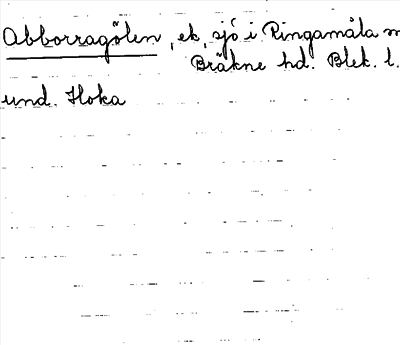 Abborragölen, ek. sjö i Ringamåla
Bräkne hd. Blek. l.
und. Hoka